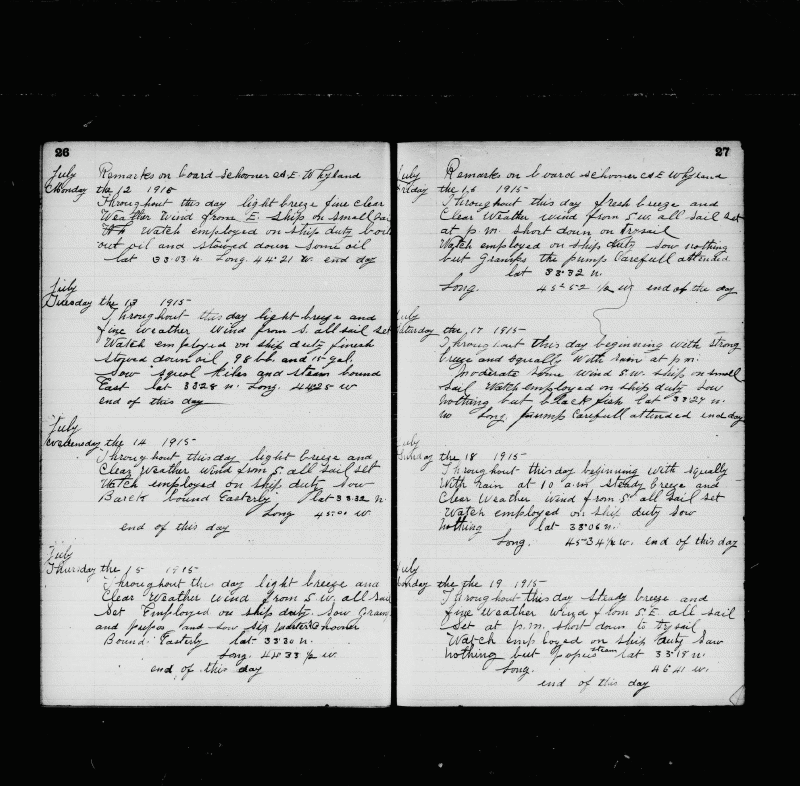 26
July Remarks on board schooner A.E. Whyland
Monday the 12 1915
Throughout this day light breeze fine clear
Weather Wind from E. ship on small sail
Watch employed on ship duty
out oil and stowed down some oil
lat 33.03 n. Long. 44.21 w. end day
July
Tuesday the 13 1915
Throughout this day light breeze and
fine weather Wind from S. all sail set
Watch employed on ship duty finish
stowed down oil, 98 bb. and 15 gal.
Sow squol kiler and steam bound
East lat 33 28 n. Long. 44 25 w
end of this day
July
Wednesday the 14 1915
Throughout this day light breeze and
Clear weather wind from S. all sail set
Watch employed on ship duty sow
Barck bound Easterly lat 33.32 n.
Long 45.01 w.
end of this day
July
Thursday the 15 1915
Throughout this day light breeze and
Clear Weather wind from S.W. all sail
Set Employed on ship duty. Sow Gramp
and sow six schooner
Bound Easterly lat 33.30 n.
Long. 45 33 1/2 w
end of this day
27
July Remarks on board schooner A E Whyland
Friday the 16 1915
Throughout this day fresh breeze and
Clear Weather wind from S.W. all sail set
at p.m. short down on trysail
Watch employed on ship duty sow nothing
but Gramps the pump Carefull attended
lat 33.32 n.
Long. 45 52 1/2 w end of the day
July
Saturday the 17 1915
Throughout this day beginning with strong
breeze and squally with rain at p.m.
moderate some wind S.W. ship on small
sail Watch employed on ship duty sow
nothing but black fish lat 33.27 n.
no Long. pump Carefull attended end day
July
Sunday the 18 1915
Throughout this day beginning with squally
With rain at 10 a.m. steady breeze and
Clear Weather Wind from S. all sail set
Watch employed on ship duty sow
nothing lat 33.06 n.
Long. 45 34 1/2 w. end of this day
July
Monday the the 19 1915
Throughout this day steady breeze and
fine Weather wind from S.E. all sail
set at p.m. short down to trysail
Watch employed on ship duty saw
nothing but steam lat 33.18 n.
Long. 46 41 w.
end of this day